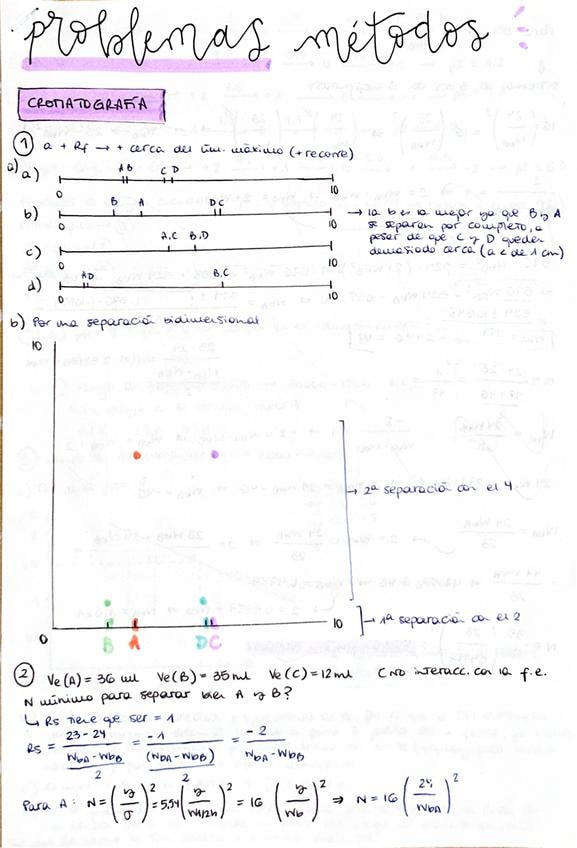 problemas métodos
CROMATOGRAFÍA
① a + Rf → + cerca del lím. máximo (+ recorre)
a) a) AB CD
0 10
b) B A D C → la b es la mejor ya que B y A
0 10 se separan por completo, a
pesar de que C y D queden
c) A,C B,D demasiado cerca (a c de 1 cm)
0 10
d) AD B,C
0 10
b) Por una separación bidimensional
10
→ 2ª separación con el 4
→ 1ª separación con el 2
0 B A D C 10
② Ve(A) = 36 ml Ve(B) = 35 ml Ve(C) = 12 ml C NO interacc. con la f.e.
N mínimo para separar bien A y B?
↳ Rs tiene que ser = 1
Rs = 23 - 24 / ((WbA - WbB) / 2) = -1 / ((WbA - WbB) / 2) = -2 / (WbA - WbB)
Para A: N = (y/σ)² = 5,54 (y/W1/2h)² = 16 (y/Wb)² ⇒ N = 16 (24/WbA)²